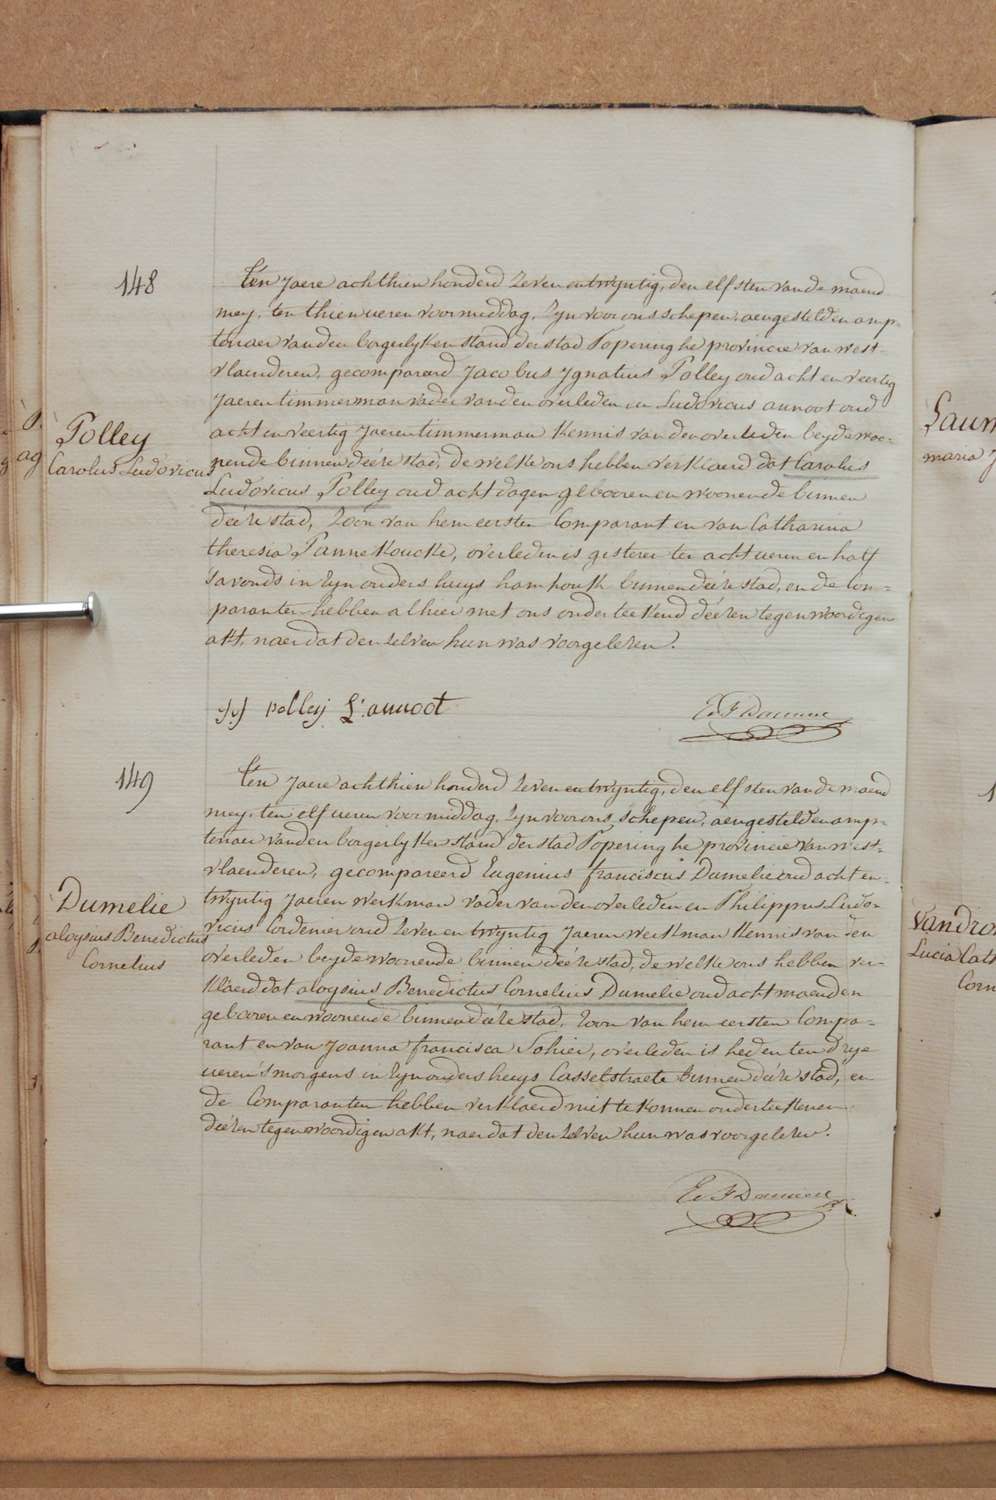 148
Ten Jaere achthien honderd Zeven en twyntig, den elfsten van de maend
mey, ten thien ueren voormiddag, Zyn voor ons schepen, aengestelden amp-
tenaer van den borgerlyken stand der stad Poperinghe provincie van west-
vlaenderen, gecompareerd Jacobus Ignatius Polley oud acht en veertig
Jaeren timmerman vader van den overleden en Ludovicus annoot oud
acht en veertig Jaeren timmerman Kennis van den overleden beyde woo-
nende binnen deéze stad, de welke ons hebben verklaerd dat Carolus
Ludovicus Polley oud acht dagen gebooren en woonende binnen
deéze stad, Zoon van hem eersten Comparant en van Catharina
theresia Pannekoucke, overleden is gisteren ten acht ueren en half
S'avonds in Zyn ouders huys binnen deéze stad, en de Com-
paranten hebben alhier met ons onderteekend deézen tegenwoordigen
akt, naer dat den zelven hun was voorgelezen.
Polley
Carolus Ludovicus
JJ polley L: annoot
149
Ten Jaere achthien honderd Zeven en twyntig, den elfsten van de maend
mey, ten elf ueren voormiddag, Zyn voor ons, schepen, aengestelden amp-
tenaer van den borgerlyken stand der stad Poperinghe provincie van west-
vlaenderen, gecompareerd Eugenius franciscus Dumelie oud acht en
twyntig Jaeren werkman vader van den overleden en Philippus Ludo-
vicus Cordenier oud Zeven en twyntig Jaeren werkman Kennis van den
overleden beyde woonende binnen deéze stad, de welke ons hebben ver-
Klaerd dat aloysius Benedictus Cornelius Dumelie oud acht maenden
gebooren en woonende binnen deéze stad, Zoon van hem eersten Compa-
rant en van Joanna francisca Sohier, overleden is heden ten drye
ueren S'morgens in Zyn ouders huys Casselstraete binnen deéze stad, en
de Comparanten hebben verklaerd niet te konnen onderteekenen
deézen tegenwoordigen akt, naer dat den Zelven hun was voorgelezen.
Dumelie
aloysius Benedictus
Cornelius
maria
Lucia